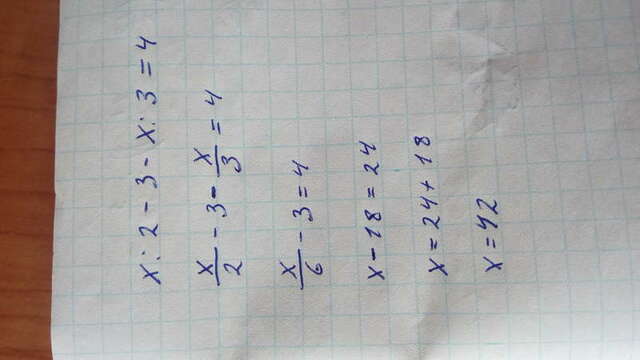 x : 2 - 3 - x : 3 = 4
x/2 - 3 - x/3 = 4
x/6 - 3 = 4
x - 18 = 24
x = 24 + 18
x = 42